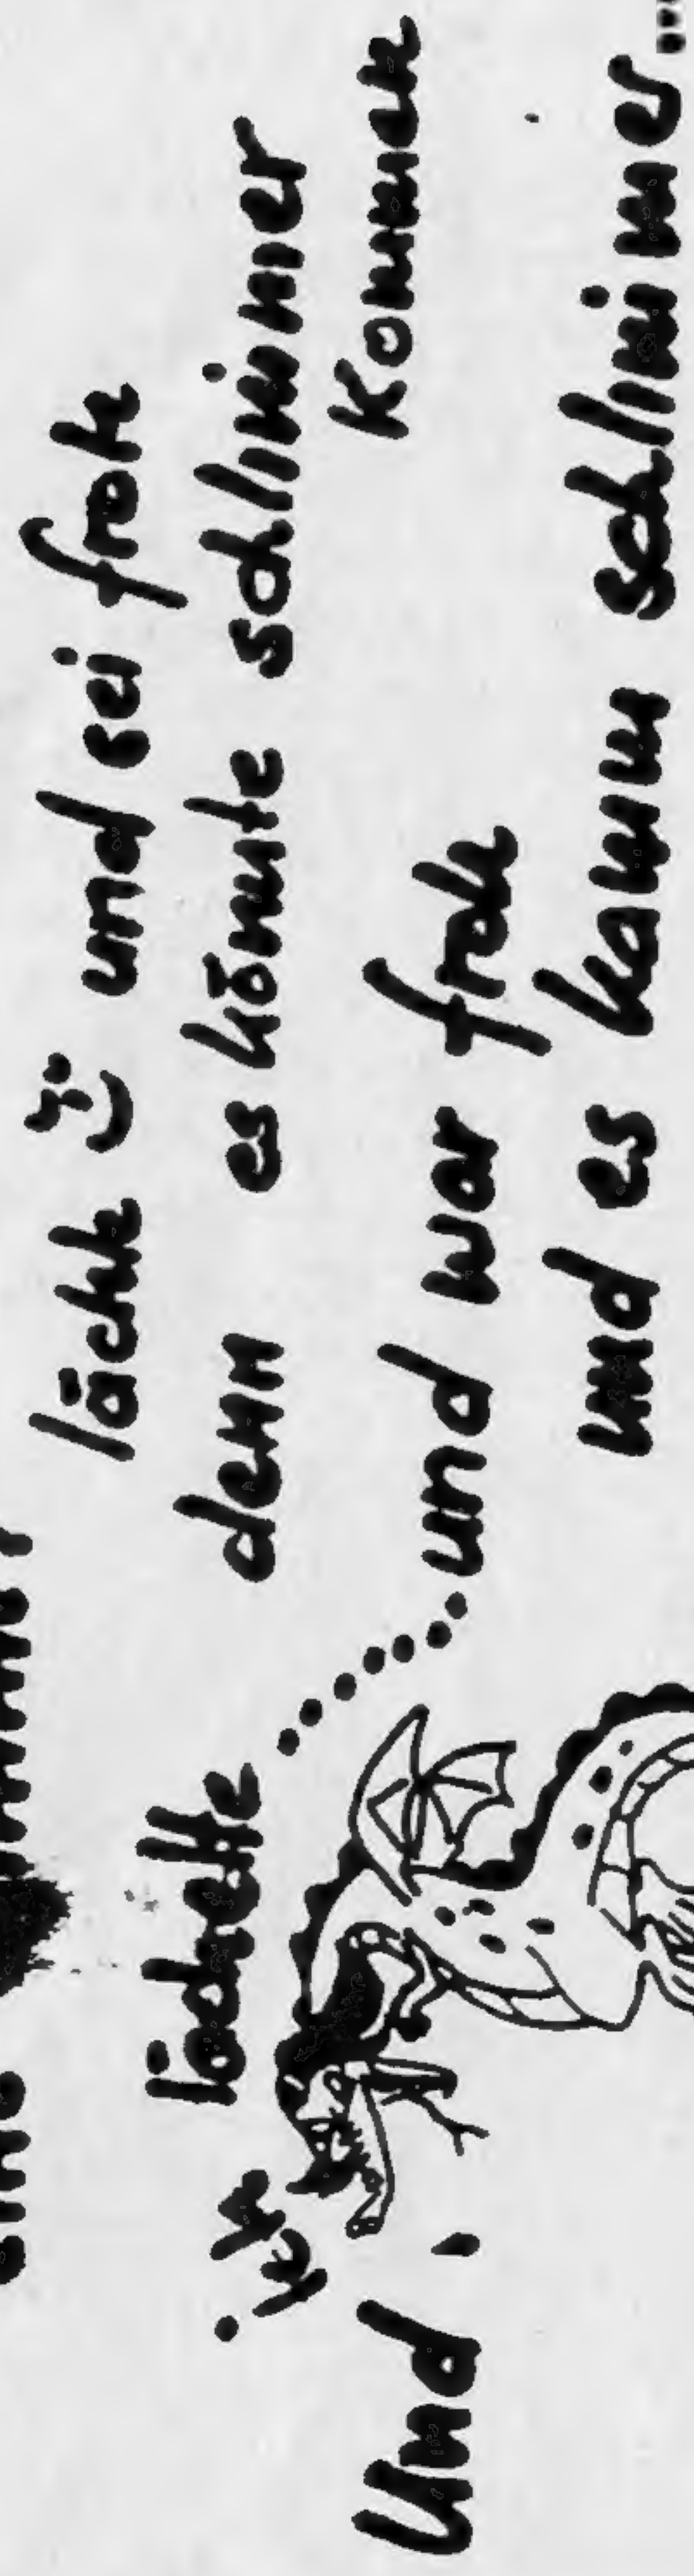 lächle und sei froh
denn es könnte schlimmer
Kommen
Und, ich lächelte ....... und war froh
und es kamm schlimmer...